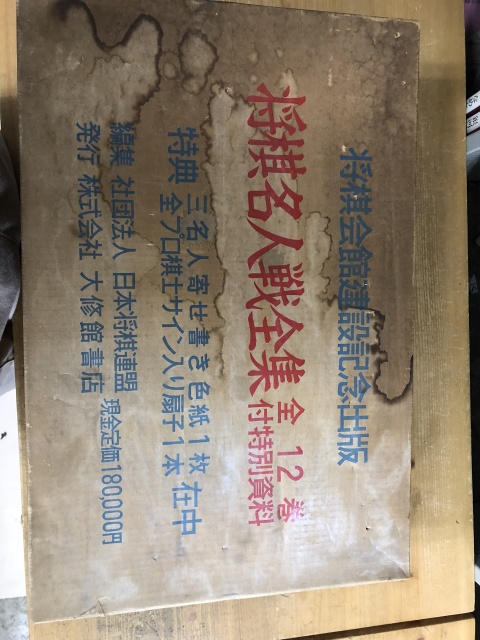 将棋会館建設記念出版
将棋名人戦全集 全12巻
付特別資料
特典 三名人寄せ書き色紙1枚
全プロ棋士サイン入り扇子1本
在中
編集 社団法人 日本将棋連盟
発行 株式会社 大修館書店
現金定価180,000円